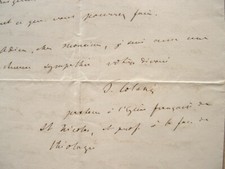 ce que vous pourrez faire.
cher monsieur,
sympathie votre dévoué
T. Colani
pasteur à l'Eglise française de
St Nicolas, et prof à la fac. de
théologie